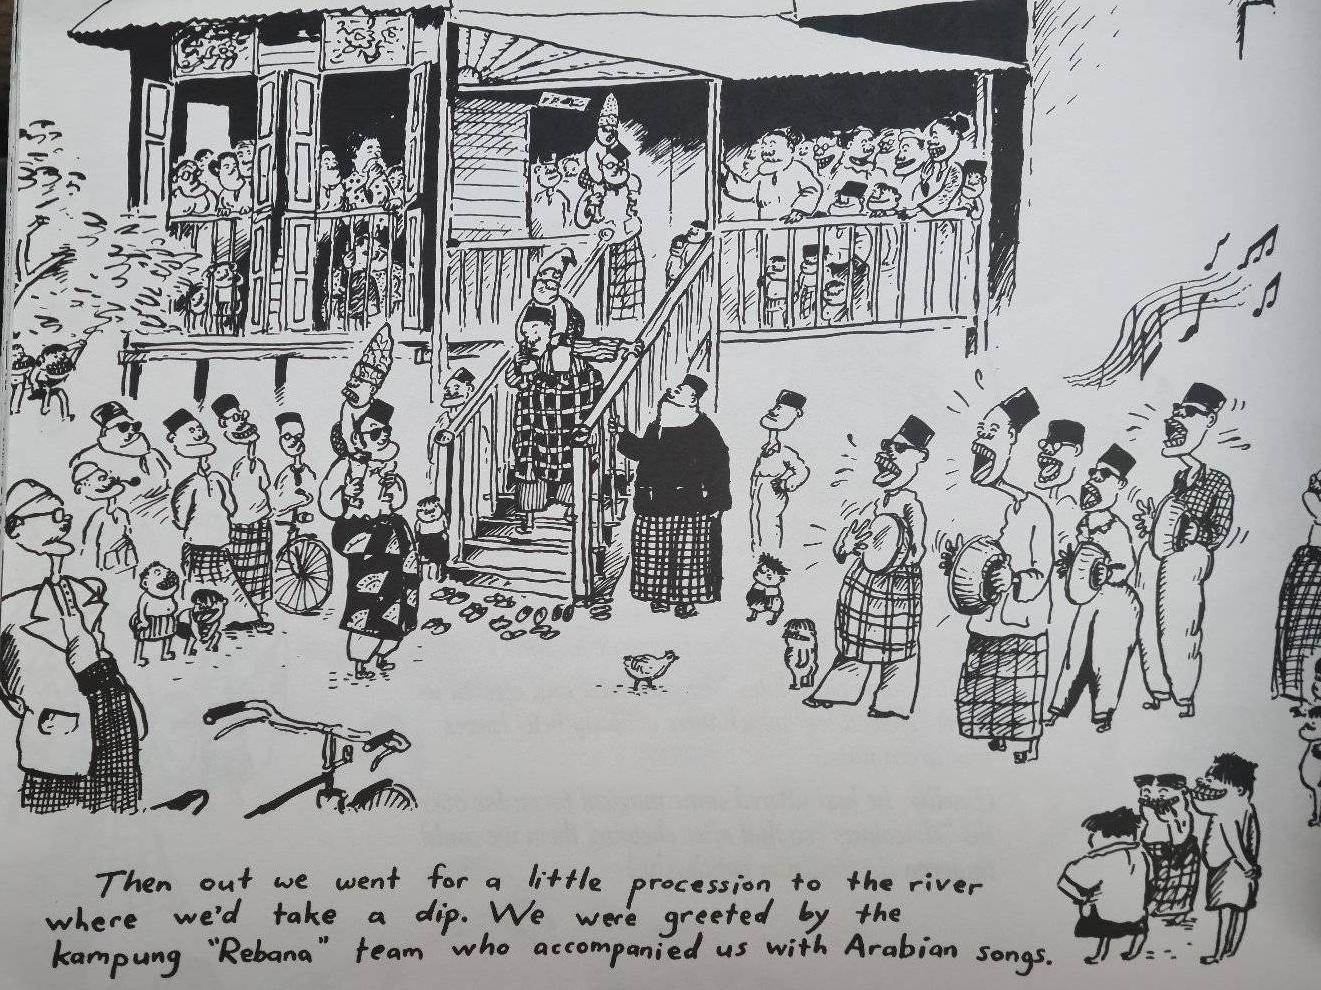 Then out we went for a little procession to the river
where we'd take a dip. We were greeted by the
kampung "Rebana" team who accompanied us with Arabian songs.